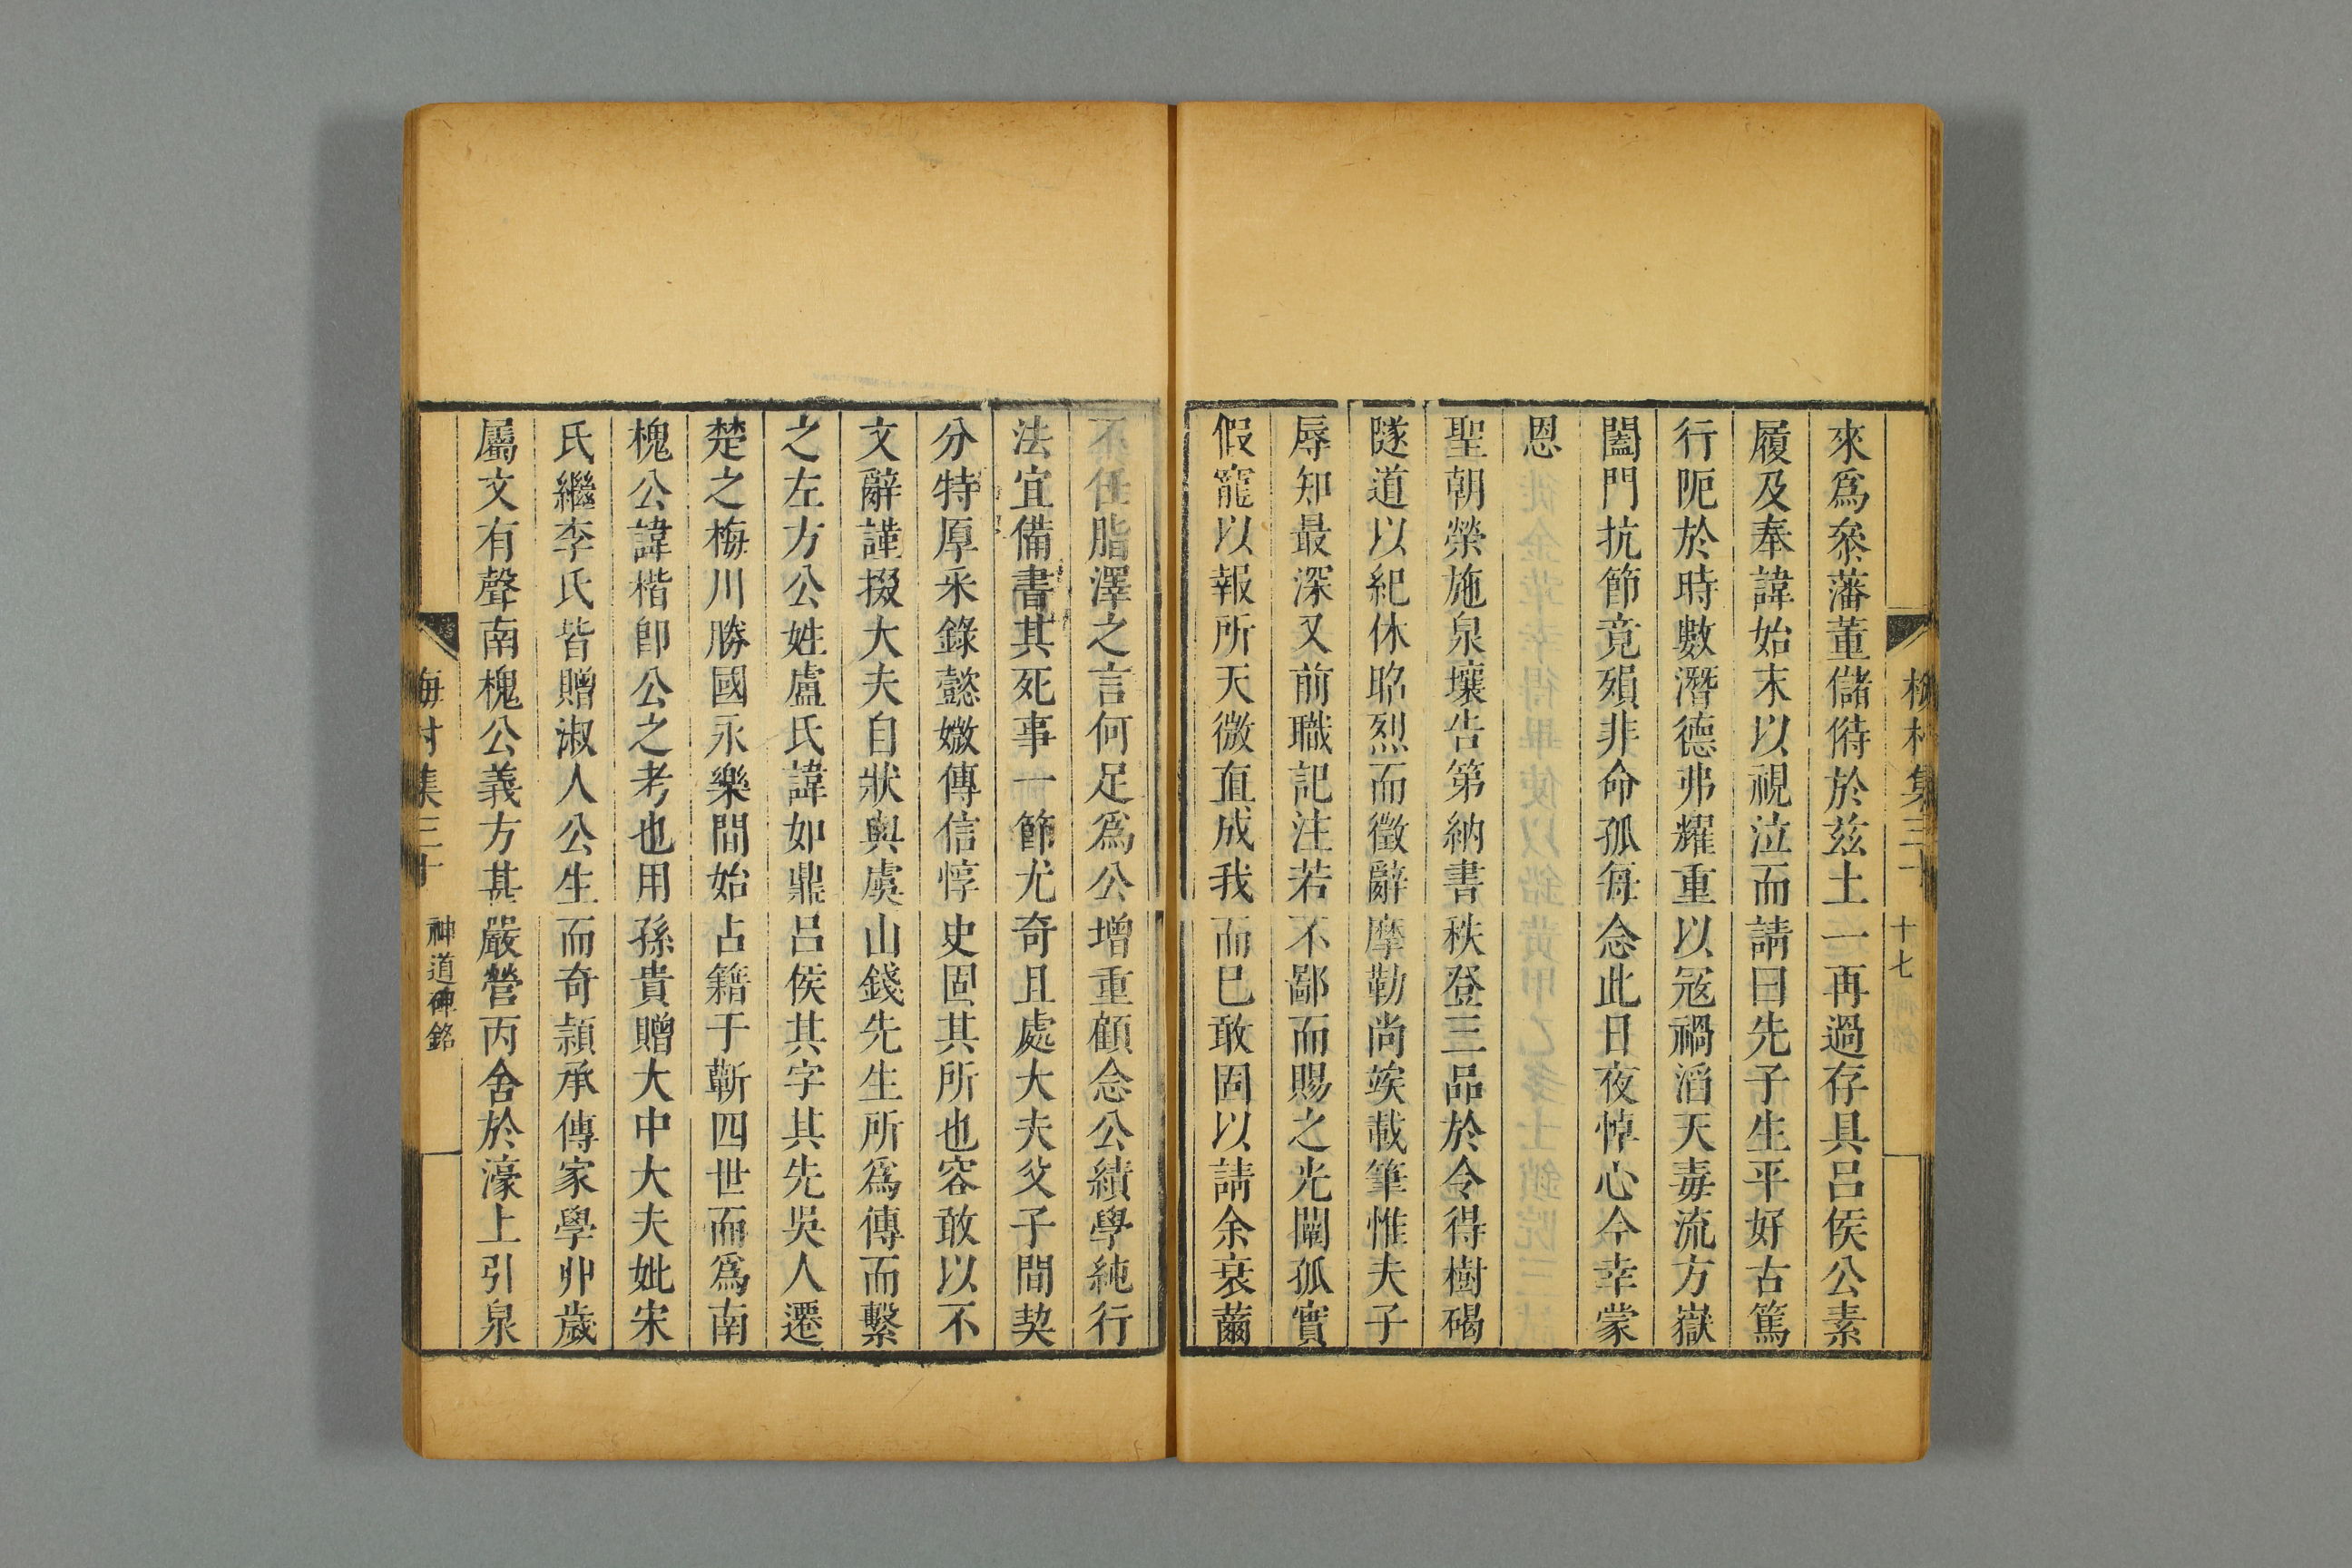 來爲叅藩董儲偫於兹土一再過存具呂侯公素
履及奉諱始末以視泣而請曰先子生平好古篤
行阨於時數潛德弗耀重以寇禍滔天毒流方嶽
闔門抗節竟殞非命孤每念此日夜悼心今幸蒙
恩
聖朝榮施泉壤告第納書秩登三品於令得樹碣
隧道以紀休昭烈而徵辭摩勒尚竢載筆惟夫子
辱知最深又前職記注若不鄙而賜之光闡孤實
假寵以報所天微直成我而已敢固以請余衰薾
十七
不任脂澤之言何足爲公增重顧念公績學純行
法宜備書其死事一節尤奇且處大夫父子間契
分特厚釆錄懿媺傳信惇史固其所也容敢以不
文辭謹掇大夫自狀與虞山錢先生所爲傳而繫
之左方公姓盧氏諱如鼎呂侯其字其先吳人遷
楚之梅川勝國永樂間始占籍于蘄四世而爲南
槐公諱楷卽公之考也用孫貴贈大中大夫妣宋
氏繼李氏皆贈淑人公生而奇穎承傳家學丱歲
屬文有聲南槐公義方甚嚴營丙舍於濠上引泉
梅村集三十
神道碑銘